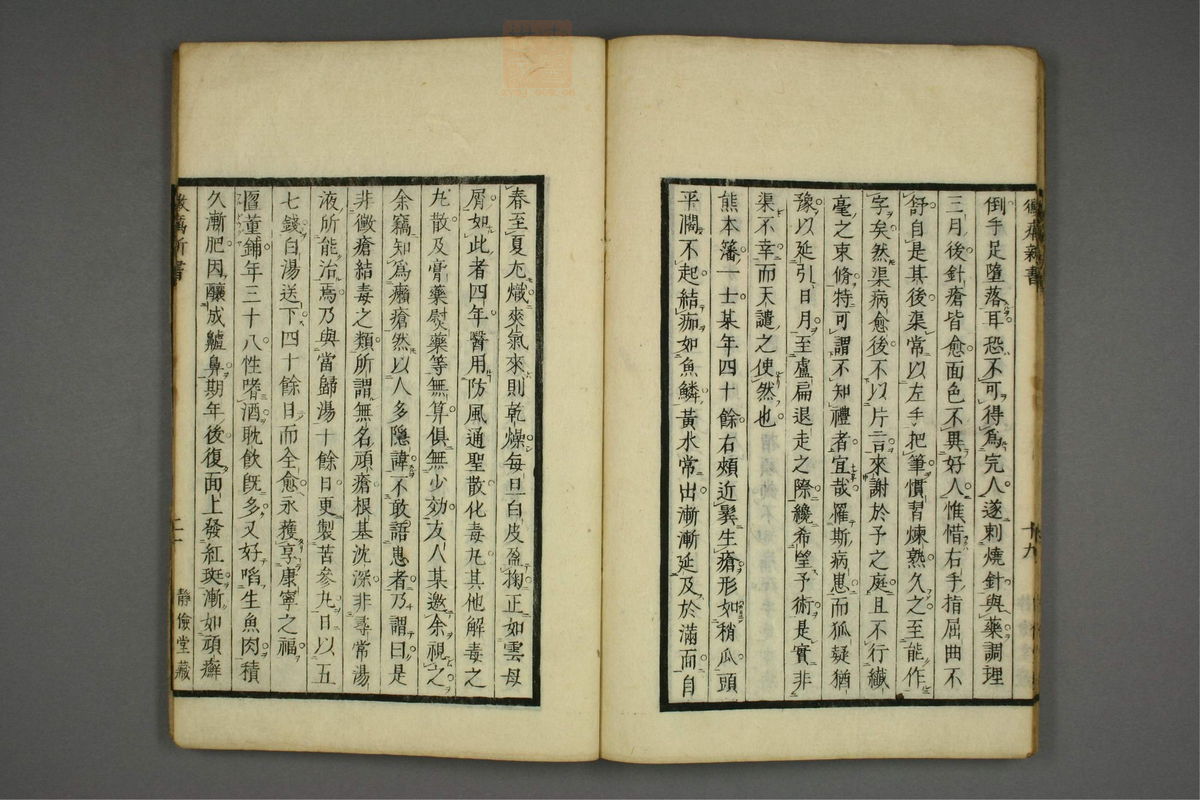 倒手足墮落耳恐不可得爲完人遂刺燒針與藥調理
三月後針瘡皆愈面色不異好人惟惜右手指屈曲不
舒自是其後渠常以左手把筆慣習煉熟久之至能作
字矣然渠病愈後不以片言來謝於予之庭且不行纖
毫之束脩特可謂不知禮者宜哉罹斯病患而狐疑猶
豫以延引日月至盧扁退走之際纔希望予術是實非
渠不幸而天譴之使然也
熊本藩一士某年四十餘右頰近鬂生瘡形如稍瓜頭
平濶不起結痂如魚鱗黃水常出漸漸延及於滿面自
十九
春至夏尤熾來氣來則乾燥每旦白皮盈掬正如雲母
屑如此者四年醫用防風通聖散化毒丸其他解毒之
丸散及膏藥熨藥等無算俱無少効友人某邀余視之
余竊知爲癩瘡然以人多隱諱不敢語患者乃謂曰是
非黴瘡結毒之類所謂無名頑瘡根基沈深非尋常湯
液所能治焉乃與當歸湯十餘日更製苦參丸日以五
七錢白湯送下四十餘日而全愈永獲享康寧之福
舊董鋪年三十八性嗜酒耽飮旣多又好啗生魚肉積
久漸肥因釀成鱸鼻期年後復面上發紅斑漸如頑癬
黴癘新書
二十
靜儉堂藏